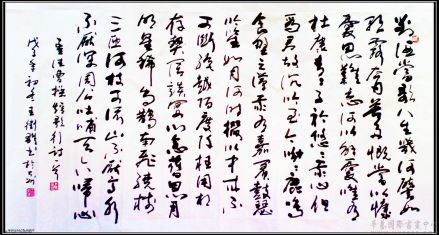 對酒當歌人生幾何譬如
朝露去日苦多慨當以慷
憂思難忘何以解憂唯有
杜康青青子衿悠悠我心但
為君故沉吟至今呦呦鹿鳴
食野之苹我有嘉賓鼓瑟
吹笙如月何時掇中來不
可斷絕越陌度阡枉用相
存契闊談讌心念舊恩月
明星稀烏鵲南飛繞樹
三匝何枝可依山不厭高水
不厭深周公吐哺天下歸心
孟德曹操短歌行詩一首
戊子年初冬王衛書於